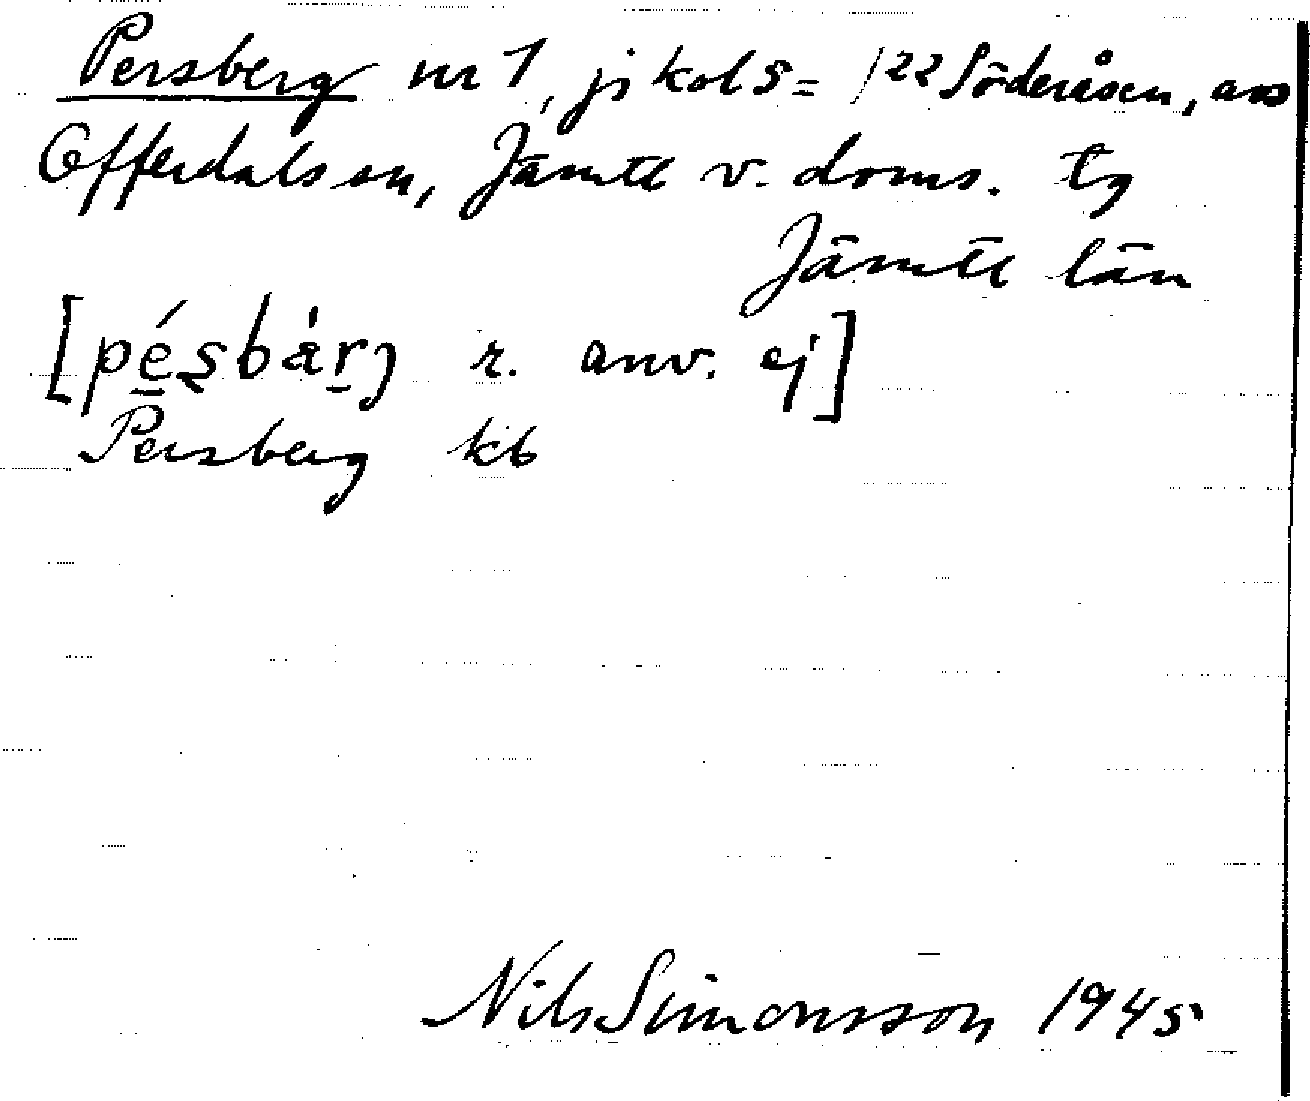 Persberg nr 1, jj kol 5 = 122 Söderåsen,
Offerdals sn, Jämtl v. doms. tg
Jämtl län
[pe̱ʂbárj r. anv. ej]
Persberg kb
Nils Simonsson 1945